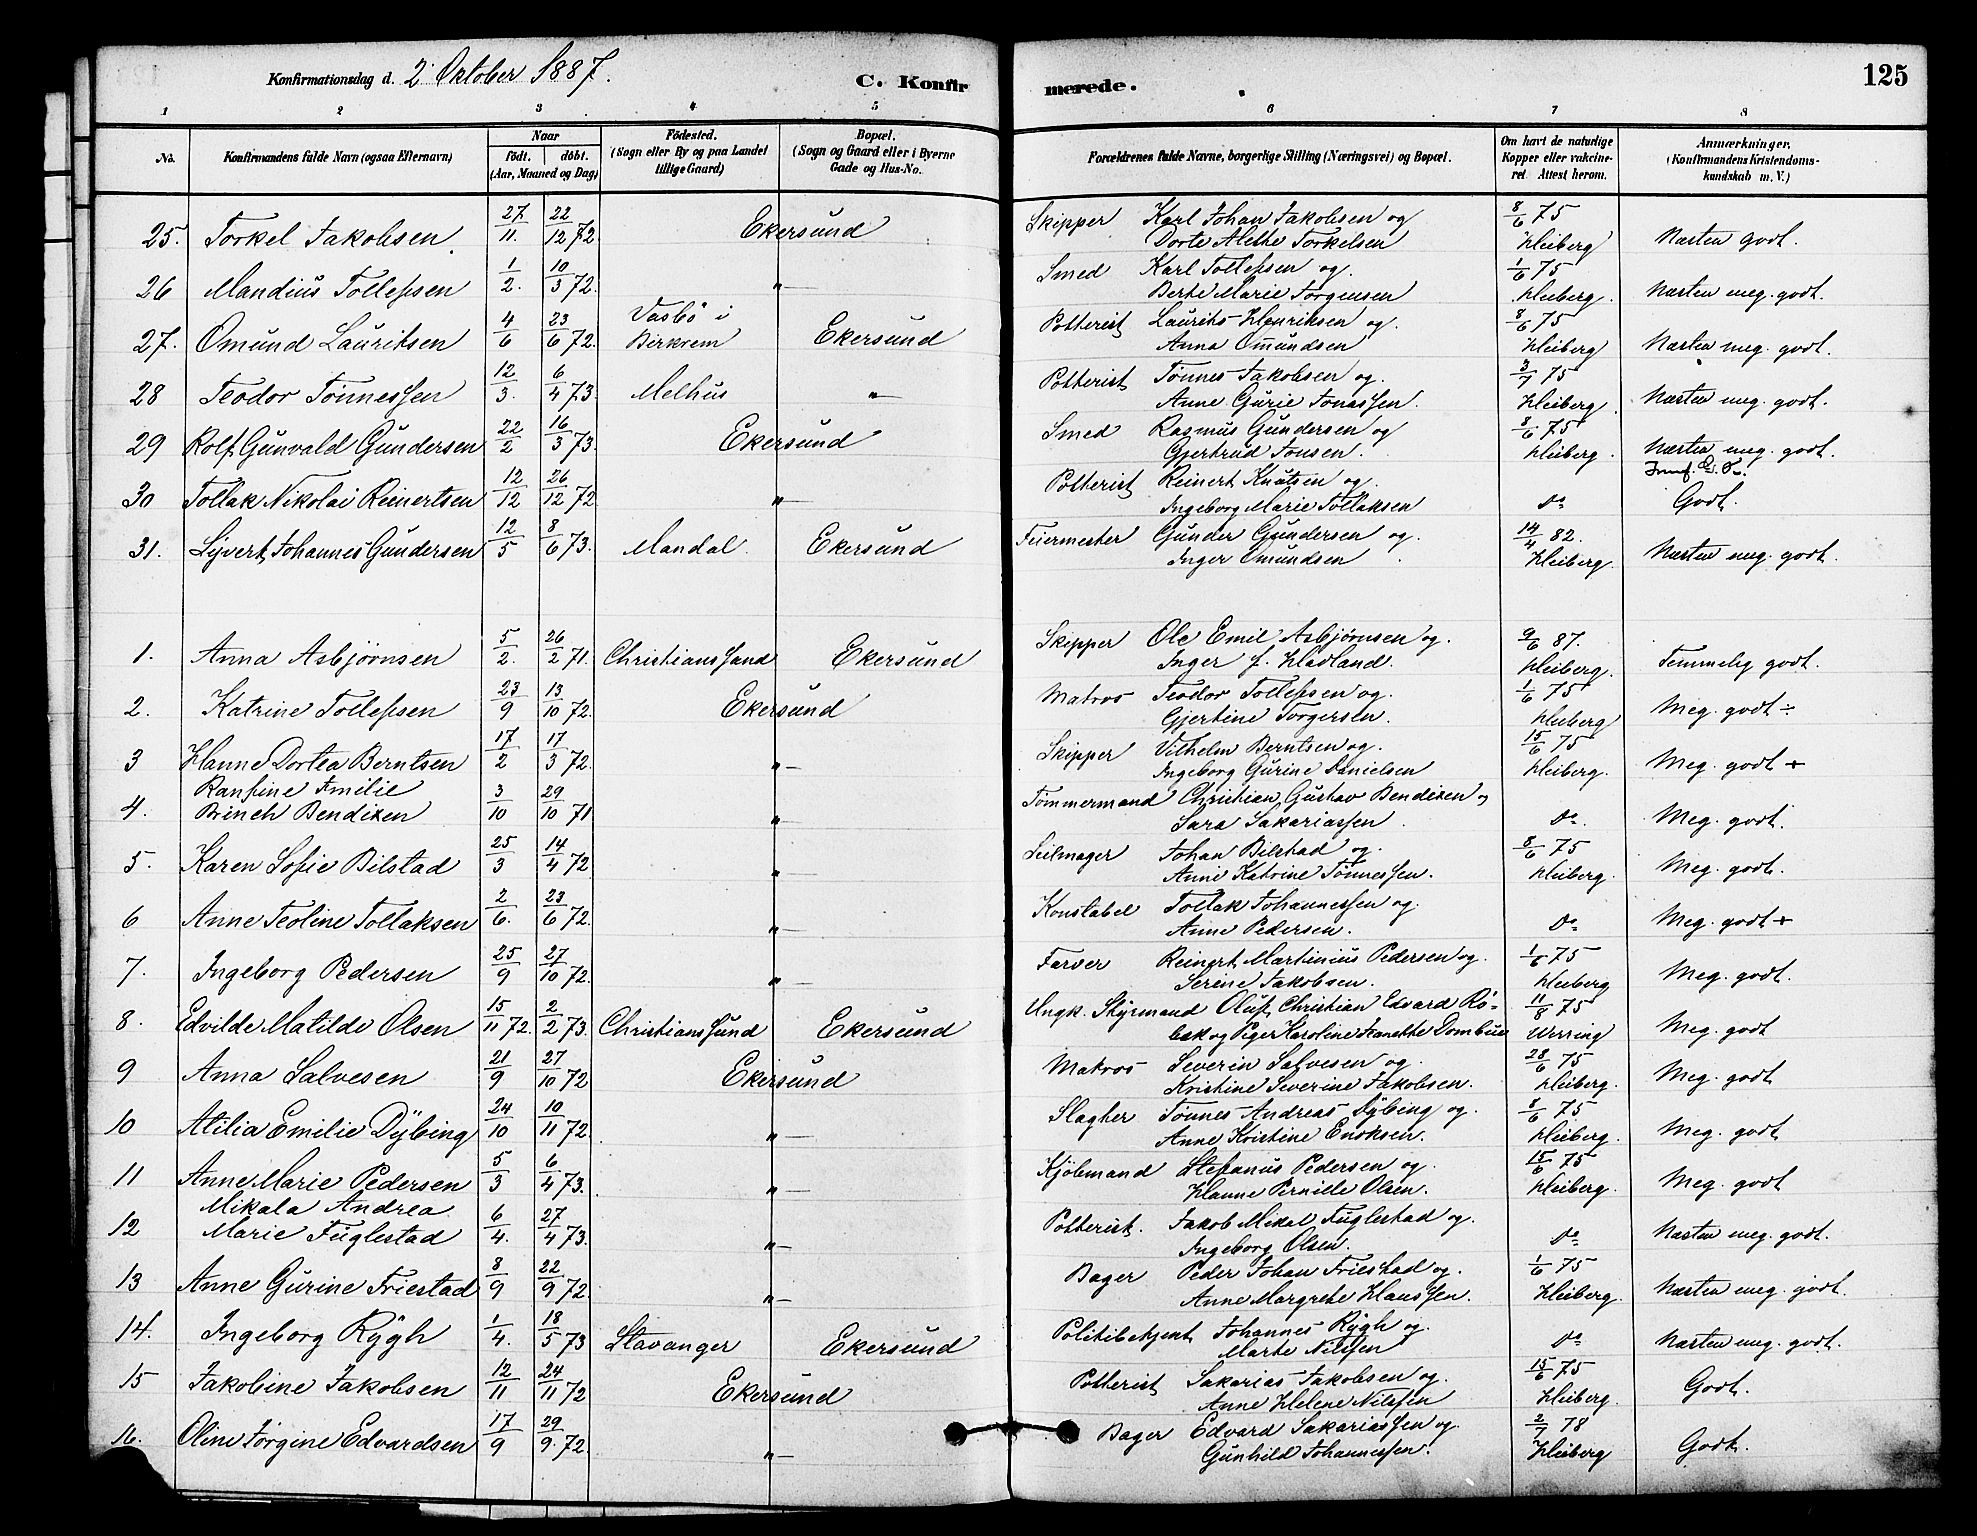 Konfirmationsdag d. 2 Oktober 1887.
C. Konfirmerede.
125
1 2 3 4 5 6 7 8
No. | Konfirmandens fulde Navn (ogsaa Efternavn) | Naar født. døbt. (Aar, Maaned og Dag) | Fødested. (Sogn eller By og paa Landet tillige Gaard) | Bopæl. (Sogn og Gaard eller i Byerne Gade og Hus-No. | Forældrenes fulde Navne, borgerlige Stilling (Næringsvei) og Bopæl. | Om havt de naturlige Kopper eller vakcineret Attest herom. | Anmærkninger. (Konfirmandens Kristendomskundskab m. V.)
25. Torkel Jakobsen 27/11. 22/12 72. Ekersund Skipper Karl Johan Jakobsen og Dorte Alethe Torkelsen 8/6 75 Heiberg Næsten godt.
26 Mandius Tollefsen 1/2. 10/3 72. "— Smed Karl Tollefsen og Berte Marie Torgensen 1/6 75 Heiberg. Næsten meg. godt.
27. Omund Lauritsen 4/6 23/6 72. Vasbö i Birkrem Ekersund Potterist Laurits Henriksen og Anna Omundsen 8/6 75 Heiberg Næsten meg. godt.
28 Teodor Tönnessen 12/3. 6/4 73. Melhus "— Potterist Tönnes Jakobsen og Anne Gurie Jonassen. 3/7 75 Heiberg. Næsten meg. godt.
29 Rolf Gunvald Gundersen 22/2 16/3 73. Ekersund Smed Rasmus Gundersen og Gjertrud Tonsen. 8/6 75 Heiberg. Næsten meg. godt.
30 Tollak Nikolai Reinertsen 12/12 26/12 72 "— Potterist Reinert Knutsen og Ingeborg Marie Tollaksen Do Godt.
31. Syvert Johannes Gundersen 12/5 8/6 73. Mandal. Ekersund Feiermester Gunder Gundersen og Inger Omundsen 14/4 82. Heiberg. Næsten meg. godt.
1. Anna Asbjørnsen 5/2. 26/2 71. Christianssand Ekersund Skipper Ole Emil Asbjørnsen og Inger f. Hadland. 9/6 87. Heiberg. Temmelig godt.
2. Katrine Tollefsen 23/9 13/10 72. Ekersund Matros Teodor Tollefsen og Gjertine Torgersen. 1/6 75 Heiberg Meg. godt ÷
3 Hanne Dortea Berntsen 17/2 17/3 72. "— Skipper Vilhelm Berntsen og Ingeborg Gurine Danielsen 15/6 75 Heiberg. Meg. godt +
4. Ranfine Emilie Brinch Bendixen 3/10 29/10 71 "— Tømmermand Christian Gustav Bendixen og Sara Sakariassen. Do. Meg. godt.
5. Karen Sofie Bilstad 25/3 14/4 72 "— Seilmager Johan Bilstad og Anne Katrine Tönnessen. 8/6 75 Heiberg. Meg. godt.
6 Anne Teoline Tollaksen 2/6. 23/6 72. "— Konstabel Tollak Johannessen og Anne Pedersen. Do Meg. godt +
7. Ingeborg Pedersen 25/9 27/10 72. "— Farver Reinert Martinius Pedersen og Serine Jakobsen. 1/6 75 Heiberg Meg. godt.
8. Edvilde Matilde Olsen 15/11 72. 2/2 73. Christianssund Ekersund Ungk. Styrmand Oluf Christian Edvard Röbæk og Piger Karoline Jeanette Dombue 11/8 75 Werring Meg. godt
9 Anna Salvesen 21/9 27/10 72 Ekersund Matros Severin Salvesen og Kristine Severine Jakobsen. 28/6 75 Heiberg. Meg. godt
10 Atilia Emilie Dybing 24/10 10/11 72. "— Slagter Tönnes Andreas Dybing og Anne Kristine Eriksen. 8/6 75 Heiberg. Meg. godt
11 Anne Marie Pedersen 5/3 6/4 73. "— Kjöbmand Stefanus Pedersen og Hanne Pernille Olsen. 15/6 75 Heiberg. Meg. godt
12 Mikala Andrea Marie Fuglestad 6/4. 27/4 73. "— Potterist. Jakob Mikal Fuglestad og Ingeborg Olsen. Do Næsten meg. godt.
13 Anne Gurine Friestad 8/9 22/9 72. "— Bager Peder Johan Friestad og Anne Margrethe Hanssen. 1/6 75 Heiberg. Næsten meg. godt.
14. Ingeborg Rygh 1/4. 18/5 73 Stavanger Ekersund Politibetjent Johannes Rygh og Marte Nilssen Do Næsten meg. godt.
15 Jakobine Jakobsen 12/11 24/11 72 Ekersund Potterist Sakarias Jakobsen og Anne Helene Nilssen 15/6 75 Heiberg. Godt.
16. Oline Jörgine Edvardsen 17/9 29/9. 72 "— Bager Edvard Sakariassen og Gunhild Johannessen. 2/7 78 Heiberg Godt.